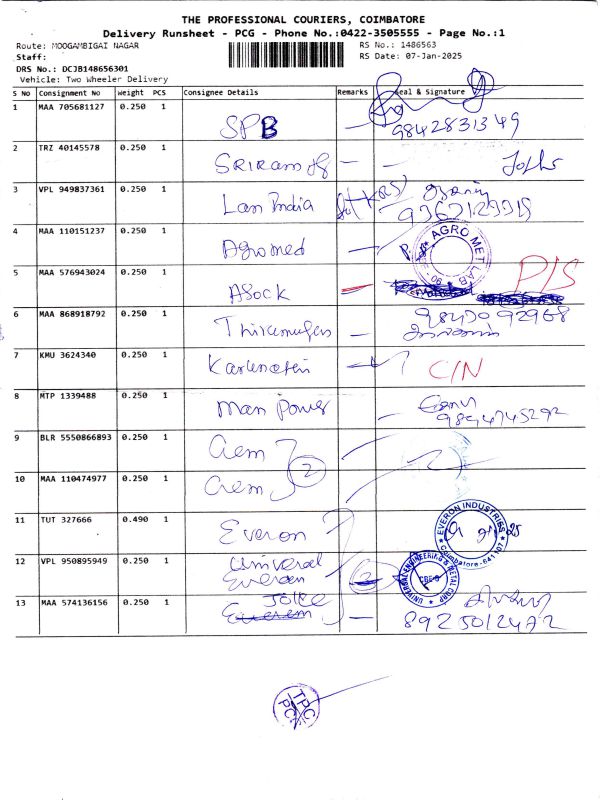 THE PROFESSIONAL COURIERS, COIMBATORE
Delivery Runsheet - PCG - Phone No.:0422-3505555 - Page No.:1
Route: MOOGAMBIGAI NAGAR RS No.: 1486563
Staff: RS Date: 07-Jan-2025
DRS No.: DCJB148656301
Vehicle: Two Wheeler Delivery
S No Consignment No Weight PCS Consignee Details Remarks Seal & Signature
1 MAA 705681127 0.250 1 SPB 9842831349
2 TRZ 40145578 0.250 1
3 VPL 949837361 0.250 1 Lan India
4 MAA 110151237 0.250 1 Agromed AGRO MET LAB
5 MAA 576943024 0.250 1 Asock P/S
6 MAA 868918792 0.250 1 9840092968
7 KMU 3624340 0.250 1 C/N
8 MTP 1339488 0.250 1 Man power 9894745292
9 BLR 5550866893 0.250 1 Crem 2
10 MAA 110474977 0.250 1 Crem
11 TUT 327666 0.490 1 Everon EVERON INDUSTRIES Coimbatore-641 107
12 VPL 950895949 0.250 1 Universal Everon 2 UNIVERSAL ENGINEERING & METAL CORP CBE-6
13 MAA 574136156 0.250 1 8925012472
TPC
PCG